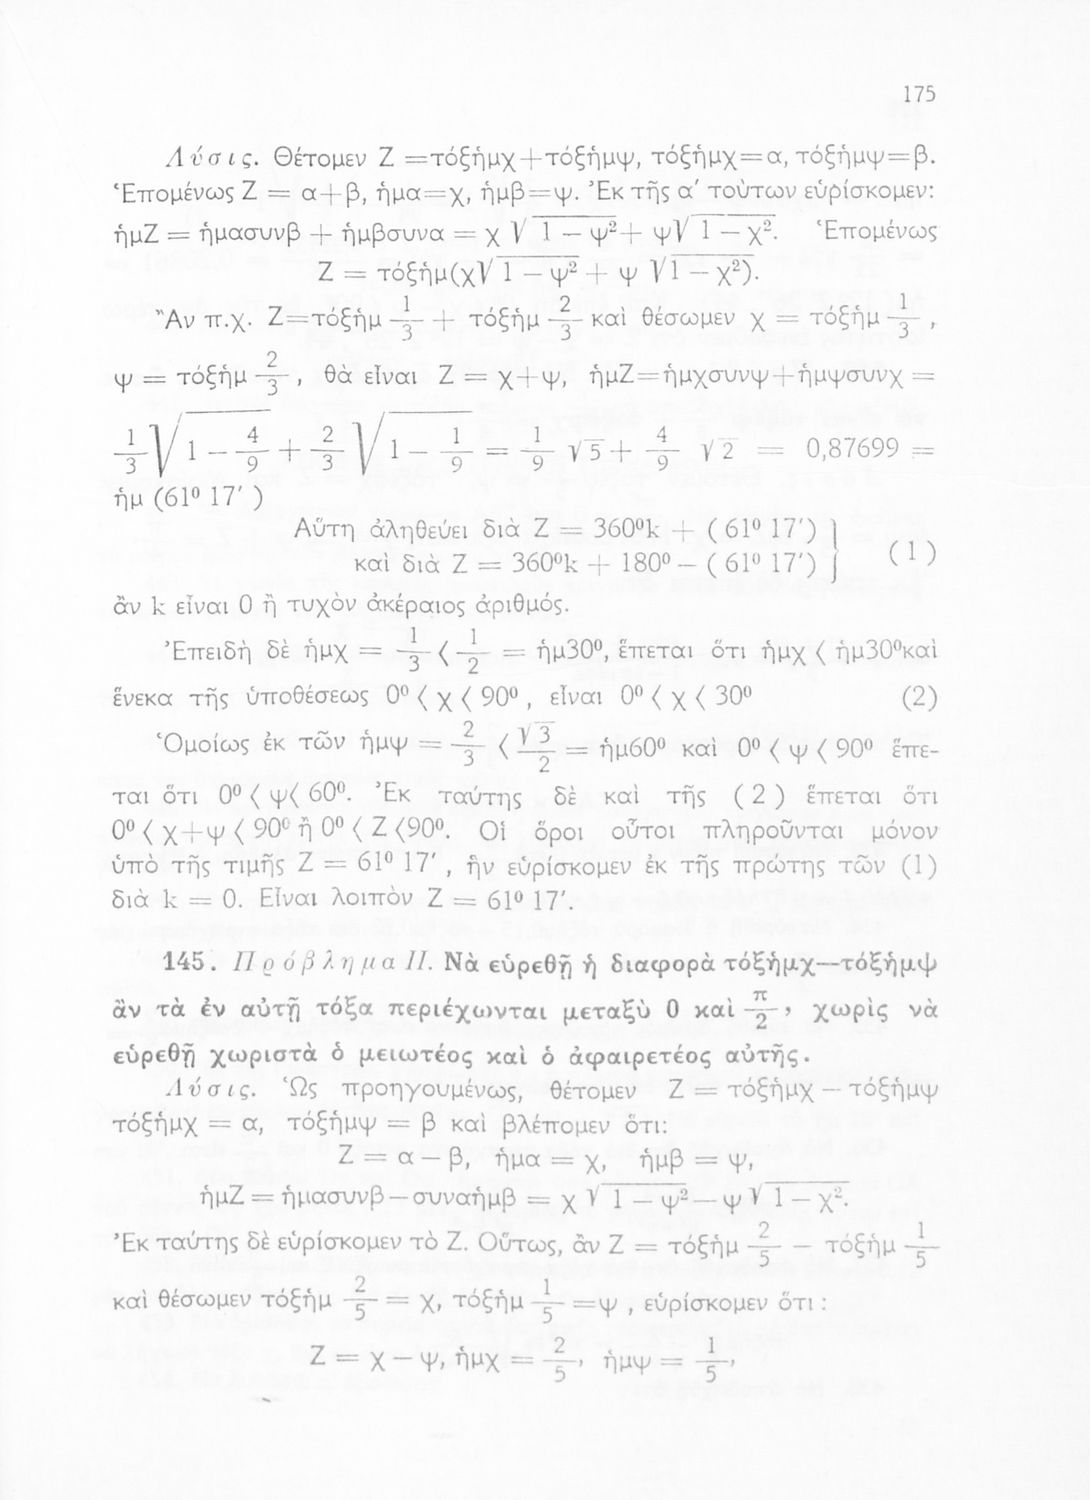 175
Λύσις. Θέτομεν Ζ =τόξἡμχ+τόξἡμψ, τόξἡμχ=α, τόξἡμψ=β.
Ἑπομένως Ζ = α+β, ἡμα=χ, ἡμβ=ψ. Ἐκ τῆς α′ τούτων εὑρίσκομεν:
ἡμΖ = ἡμασυνβ + ἡμβσυνα = χ √(1 — ψ²) + ψ√(1 — χ²). Ἑπομένως
Ζ = τόξἡμ(χ√(1 — ψ²) + ψ √(1 — χ²)).
Ἂν π.χ. Ζ=τόξἡμ 1/3 + τόξἡμ 2/3 καὶ θέσωμεν χ = τόξἡμ 1/3 ,
ψ = τόξἡμ 2/3 , θὰ εἶναι Ζ = χ+ψ, ἡμΖ=ἡμχσυνψ+ἡμψσυνχ =
1/3 √(1 — 4/9) + 2/3 √(1 — 1/9) = 1/9 √5 + 4/9 √2 = 0,87699 =
ἡμ (61⁰ 17′ )
Αὕτη ἀληθεύει διὰ Ζ = 360⁰k + ( 61⁰ 17′) }
καὶ διὰ Ζ = 360⁰k + 180⁰ — ( 61⁰ 17′) } (1)
ἂν k εἶναι 0 ἢ τυχὸν ἀκέραιος ἀριθμός.
Ἐπειδὴ δὲ ἡμχ = 1/3 < 1/2 = ἡμ30⁰, ἕπεται ὅτι ἡμχ < ἡμ30⁰καὶ
ἕνεκα τῆς ὑποθέσεως 0⁰ < χ < 90⁰ , εἶναι 0⁰ < χ < 30⁰ (2)
Ὁμοίως ἐκ τῶν ἡμψ = 2/3 < √3/2 = ἡμ60⁰ καὶ 0⁰ < ψ < 90⁰ ἕπε-
ται ὅτι 0⁰ < ψ< 60⁰. Ἐκ ταύτης δὲ καὶ τῆς ( 2 ) ἕπεται ὅτι
0⁰ < χ+ψ < 90⁰ ἢ 0⁰ < Ζ <90⁰. Οἱ ὅροι οὗτοι πληροῦνται μόνον
ὑπὸ τῆς τιμῆς Ζ = 61⁰ 17′ , ἣν εὑρίσκομεν ἐκ τῆς πρώτης τῶν (1)
διὰ k = 0. Εἶναι λοιπὸν Ζ = 61⁰ 17′.
145. Πρόβλημα ΙΙ. Νὰ εὑρεθῇ ἡ διαφορὰ τόξἡμχ—τόξἡμψ
ἂν τὰ ἐν αὐτῇ τόξα περιέχωνται μεταξὺ 0 καὶ π/2 , χωρὶς νὰ
εὑρεθῇ χωριστὰ ὁ μειωτέος καὶ ὁ ἀφαιρετέος αὐτῆς.
Λύσις. Ὡς προηγουμένως, θέτομεν Ζ = τόξἡμχ — τόξἡμψ
τόξἡμχ = α, τόξἡμψ = β καὶ βλέπομεν ὅτι:
Ζ = α — β, ἡμα = χ, ἡμβ = ψ,
ἡμΖ = ἡμασυνβ—συναἡμβ = χ √(1 — ψ²) — ψ √(1 — χ²).
Ἐκ ταύτης δὲ εὑρίσκομεν τὸ Ζ. Οὕτως, ἂν Ζ = τόξἡμ 2/5 — τόξἡμ 1/5
καὶ θέσωμεν τόξἡμ 2/5 = χ, τόξἡμ 1/5 =ψ , εὑρίσκομεν ὅτι :
Ζ = χ — ψ, ἡμχ = 2/5 , ἡμψ = 1/5 ,